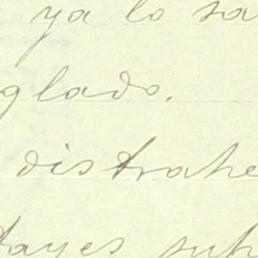 ya lo sa
glado.
distrahe
tayes suh